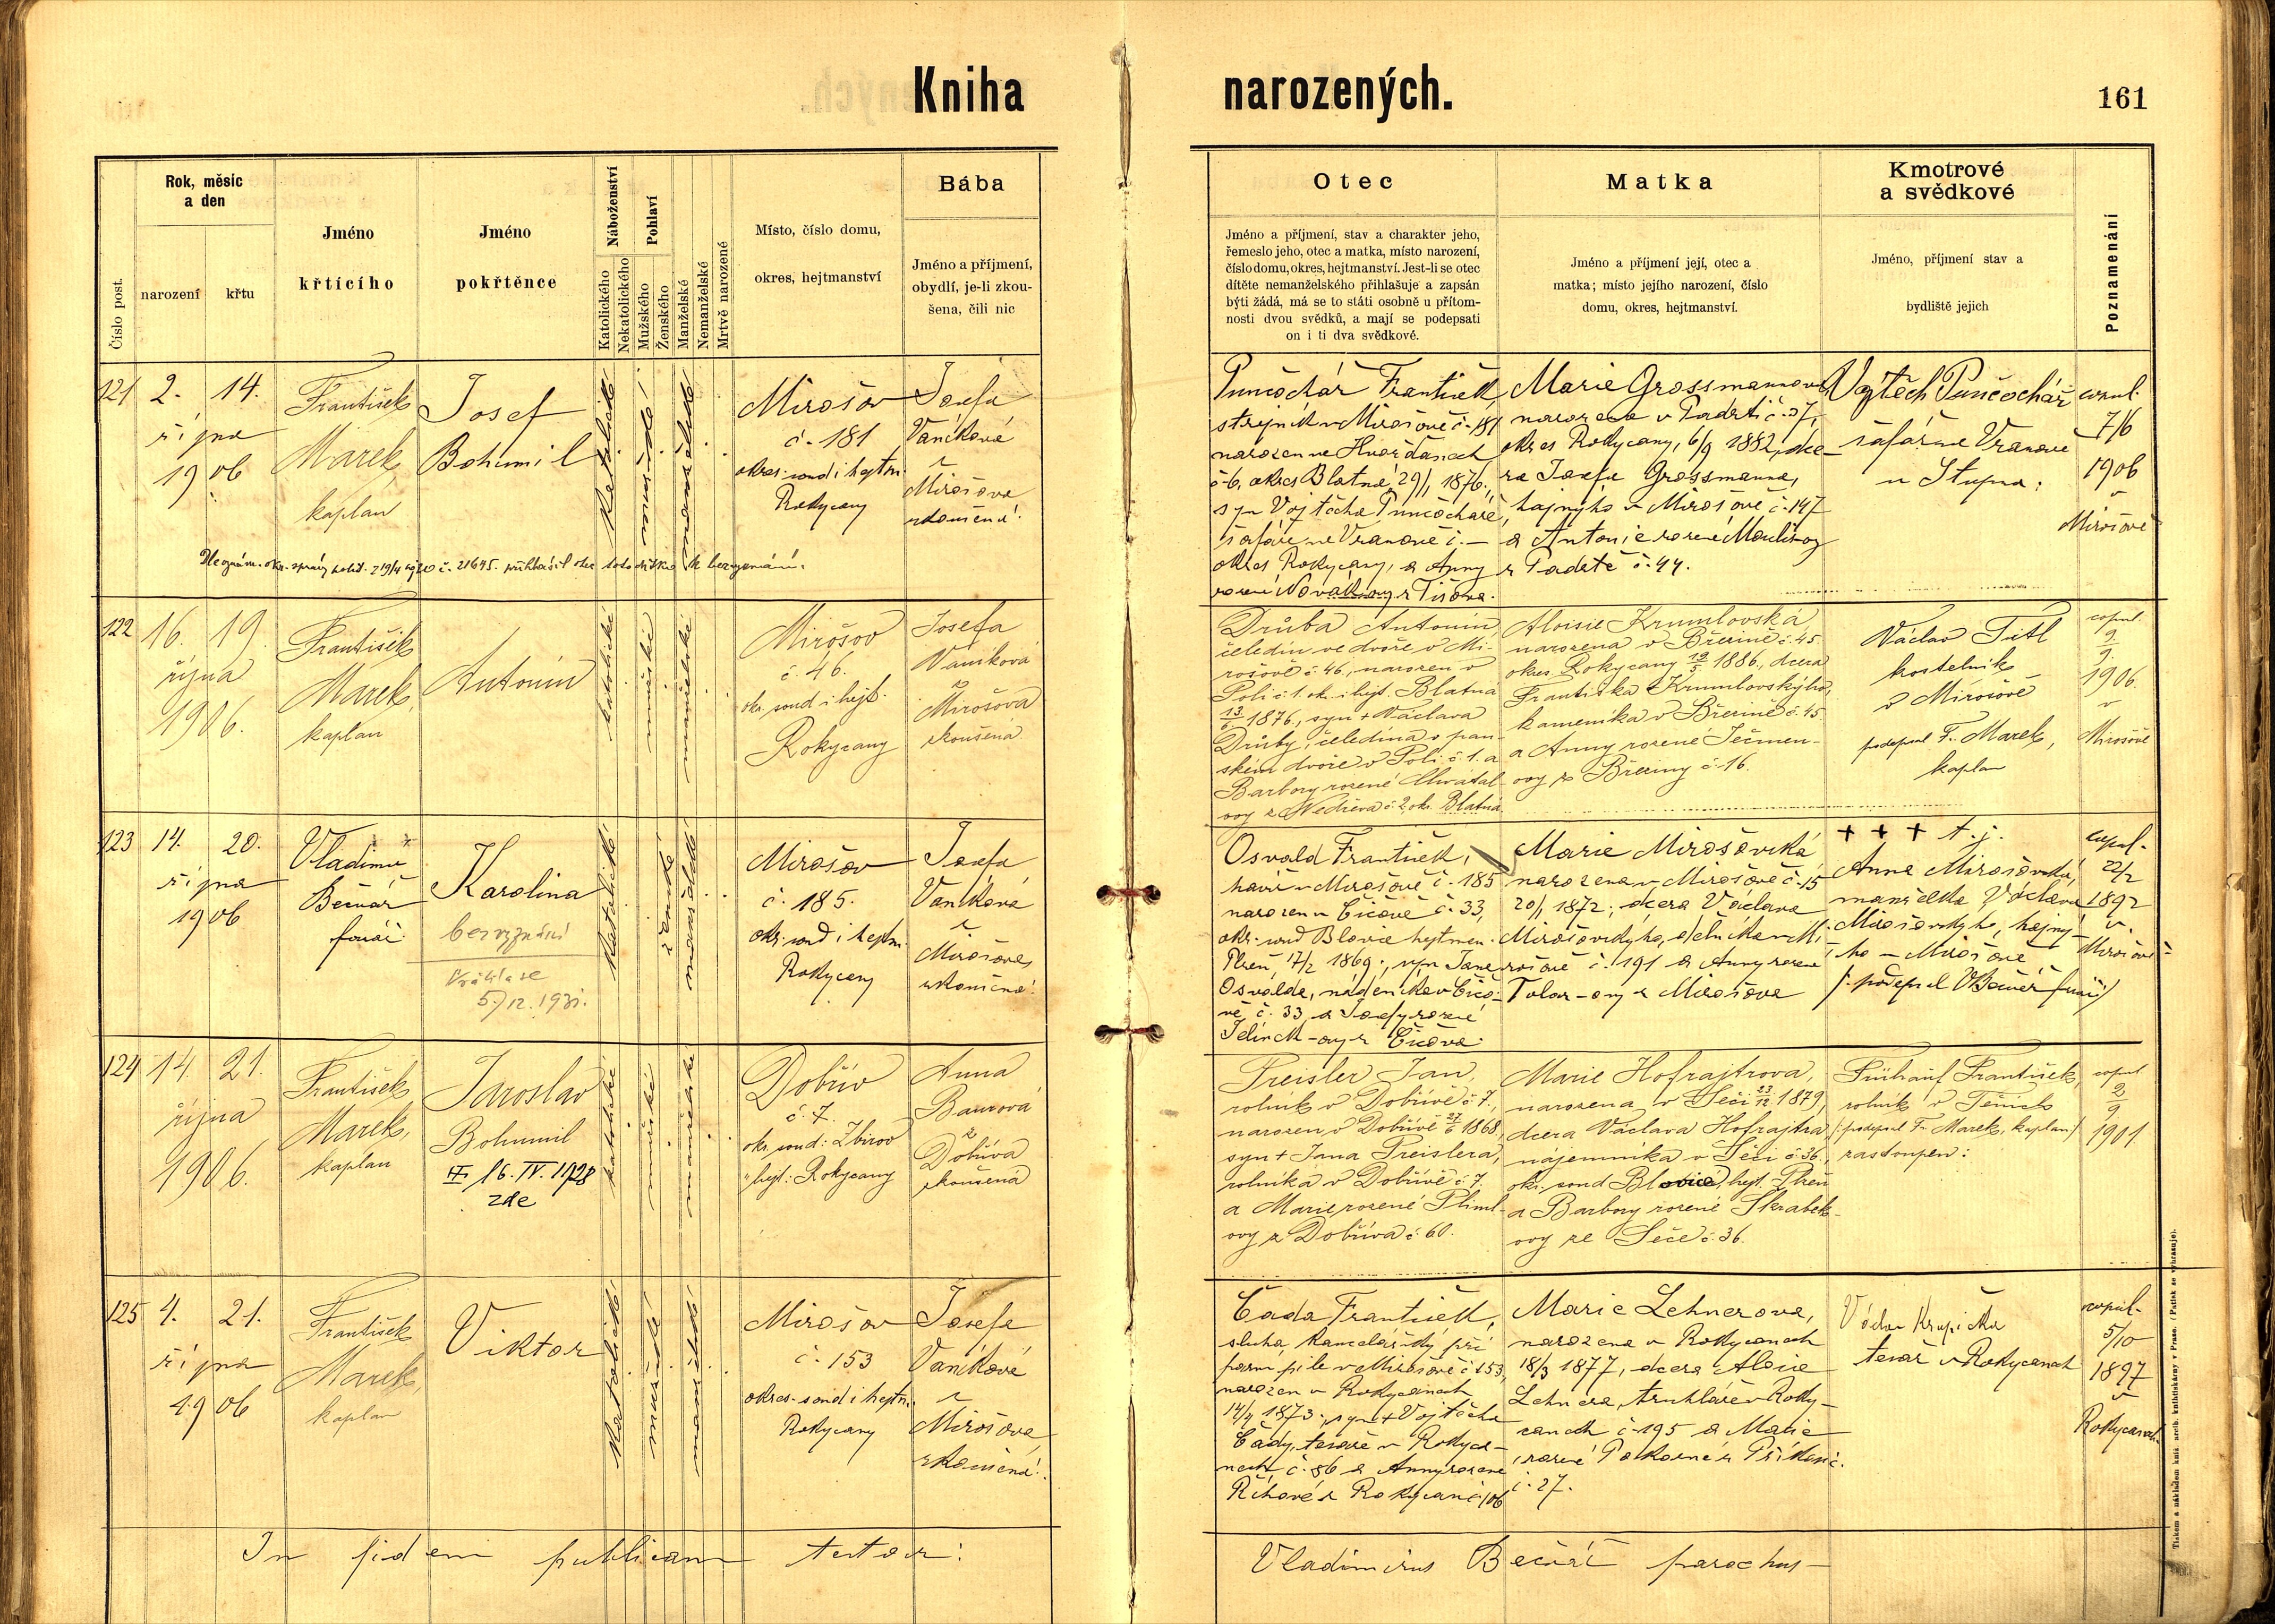 Kniha narozených.
161
Číslo post.
Rok, měsíc
a den
narození
křtu
Jméno
křtícího
Jméno
pokřtěnce
Náboženství
Katolického
Nekatolického
Pohlaví
Mužského
Ženského
Manželské
Nemanželské
Mrtvě narozené
Místo, číslo domu,
okres, hejtmanství
Bába
Jméno a příjmení,
obydlí, je-li zkou-
šena, čili nic
Otec
Jméno a příjmení, stav a charakter jeho,
řemeslo jeho, otec a matka, místo narození,
číslo domu, okres, hejtmanství. Jest-li se otec
dítěte nemanželského přihlašuje a zapsán
býti žádá, má se to státi osobně u přítom-
nosti dvou svědků, a mají se podepsati
on i ti dva svědkové.
Matka
Jméno a příjmení její, otec a
matka; místo jejího narození, číslo
domu, okres, hejtmanství.
Kmotrové
a svědkové
Jméno, příjmení stav a
bydliště jejich
Poznamenání
121
2. 14.
října
1906
František
Marek,
kaplan
Josef
Bohumil
katolické
mužské
manželské
Mirošov
č. 181
okres. soud i hejtm.
Rokycany
Josefa
Vaníková
z
Mirošova
zkoušená.
Punčochář František,
strojník v Mirošově č. 181
narozen ve Hvožďanech
č. 6, okres Blatná, 29/1 1876.,
syn Vojtěcha Punčocháře,
šafáře ve Vranově č. —
okres Rokycany, a Anny
rozené Novákovy z Tisova.
Marie Grossmannova
narozena v Padrti č. 37,
okres Rokycany, 6/9 1882, dce-
ra Josefa Grossmanna,
hajného v Mirošově č. 147
a Antonie rozené Moulisovy
z Padrtě č. 44.
Vojtěch Punčochář
šafář ve Vranově
u Stupna.
copul.
7/6
1906
v
Mirošově
122
16. 19.
října
1906.
František
Marek,
kaplan
Antonín
katolické
mužské
manželské
Mirošov
č. 46.
okr. soud i hejt.
Rokycany
Josefa
Vaníková
z
Mirošova
zkoušená
Drůba Antonín,
čeledín ve dvoře v Mi-
rošově č. 46., narozen v
Poli č. 1. ok. i hejt. Blatná
13/6 1876., syn + Václava
Drůby, čeledína v pan-
ském dvoře v Poli č. 1. a
Barbory rozené Chvátal-
ovy z Nedřeva č. 2, okr. Blatná
Aloisie Krumlovská,
narozena v Březině č. 45
okres Rokycany 19/5 1886., dcera
Františka Krumlovského,
kameníka v Březině č. 45.
a Anny rozené Ječmen-
ovy z Březiny č. 16.
Václav Titl
kostelník
v Mirošově
podepsal F. Marek,
kaplan
copul.
2/9
1906.
v
Mirošově
123
14. 20.
října
1906
Vladimír
Bečvář
farář
Karolina
bez vyznání
Vrátila se
5./12. 1931.
katolické
ženské
manželské
Mirošov
č. 185.
okr. soud i hejtm.
Rokycany
Josefa
Vaníková
z
Mirošova,
zkoušená.
Osvald František,
havíř v Mirošově č. 185
narozen v Čičově č. 33,
okr. soud Blovice hejtman.
Plzeň, 17/2 1869., syn Jana
Osvalda, nádeníka v Čičo-
vě č. 33, a Josefy rozené
Jelínek-ovy z Čičova.
Marie Mirošovská
narozena v Mirošově č. 15
20/1 1872., dcera Václava
Mirošovského, dělníka v Mi-
rošově č. 191 a Anny rozené
z Mirošova
+ + + t. j.
Anna Mirošovská,
manželka Václava
Mirošovského, hajné-
ho v Mirošově
(: podepsal VBečvář farář)
copul.
22/2
1892
v
Mirošově
124
14. 21.
října
1906.
František
Marek,
kaplan
Jaroslav
Bohumil
16. IV. 1928
zde
katolické
mužské
manželské
Dobřív
č. 7.
okr. soud: Zbiroh
" hejt.: Rokycany
Anna
Baurová
z
Dobříva
zkoušená
Preisler Jan,
rolník v Dobřívě č. 7.,
narozen v Dobřívě 27/6 1868,
syn + Jana Preislera,
rolníka v Dobřívě č. 7.
a Marie rozené Pliml-
ovy z Dobříva č. 60.
Marie Hofrajtrova,
narozena v Seči 23/12 1879,
dcera Václava Hofrajtra,
nájemníka v Seči č. 36.,
okr. soud Blovice, hejt. Plzeň
a Barbory rozené Skrabek-
ovy ze Seče č. 36.
Frühauf František,
rolník v Těních
(: podepsal Fr. Marek, kaplan)
zastoupen:
copul
2/9
1901
125
4. 21.
října
1906
František
Marek,
kaplan
Viktor
katolické
mužské
manželské
Mirošov
č. 153
okres. soud i hejtm.
Rokycany
Josefa
Vaníková
z
Mirošova
zkoušená.
Čada František,
sluha kancelářský při
parní pile v Mirošově č. 153,
narozen v Rokycanech
14/4 1873., syn + Vojtěcha
Čady, tesaře v Rokyca-
nech č. 86 a Anny rozené
Říhové z Rokycan č. 106
Marie Lehnerova,
narozena v Rokycanech
18/3 1877, dcera Aloise
Lehnera, truhláře v Roky-
canech č. 195 a Marie
rozené Pokorné z Příkosic
č. 27.
Václav Krupička
tesař v Rokycanech
copul.
5/10
1897
v
Rokycanech
In fidem publicam testor:
Vladimirus Bečvář parochus